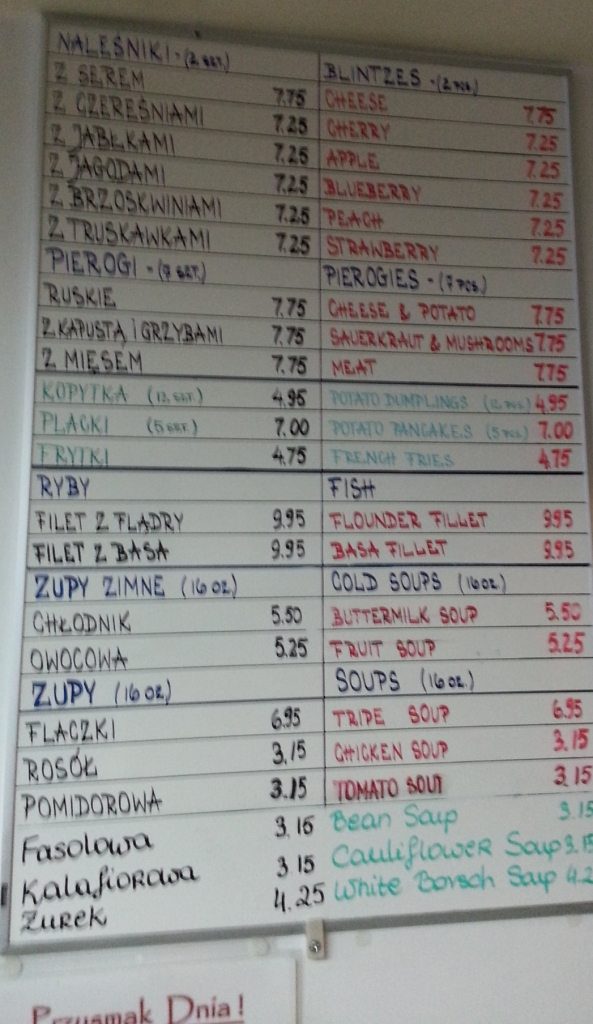 NALEŚNIKI - (2 SZT.) BLINTZES - (2 PCS.)
Z SEREM 7.75 CHEESE 7.75
Z CZEREŚNIAMI 7.25 CHERRY 7.25
Z JABŁKAMI 7.25 APPLE 7.25
Z JAGODAMI 7.25 BLUEBERRY 7.25
Z BRZOSKWINIAMI 7.25 PEACH 7.25
Z TRUSKAWKAMI 7.25 STRAWBERRY 7.25
PIEROGI - (7 SZT.) PIEROGIES - (7 PCS.)
RUSKIE 7.75 CHEESE & POTATO 7.75
Z KAPUSTĄ I GRZYBAMI 7.75 SAUERKRAUT & MUSHROOMS 7.75
Z MIĘSEM 7.75 MEAT 7.75
KOPYTKA (12 SZT.) 4.95 POTATO DUMPLINGS (12 PCS.) 4.95
PLACKI (5 SZT.) 7.00 POTATO PANCAKES (5 PCS.) 7.00
FRYTKI 4.75 FRENCH FRIES 4.75
RYBY FISH
FILET Z FLĄDRY 9.95 FLOUNDER FILLET 9.95
FILET Z BASA 9.95 BASA FILLET 9.95
ZUPY ZIMNE (16 OZ.) COLD SOUPS (16 OZ.)
CHŁODNIK 5.50 BUTTERMILK SOUP 5.50
OWOCOWA 5.25 FRUIT SOUP 5.25
ZUPY (16 OZ.) SOUPS (16 OZ.)
FLACZKI 6.95 TRIPE SOUP 6.95
ROSÓŁ 3.15 CHICKEN SOUP 3.15
POMIDOROWA 3.15 TOMATO SOUP 3.15
Fasolowa 3.15 Bean Soup 3.15
Kalafiorowa 3 15 Cauliflower Soup 3.15
Żurek 4.25 White Borsch Soup 4.2
Przysmak Dnia!